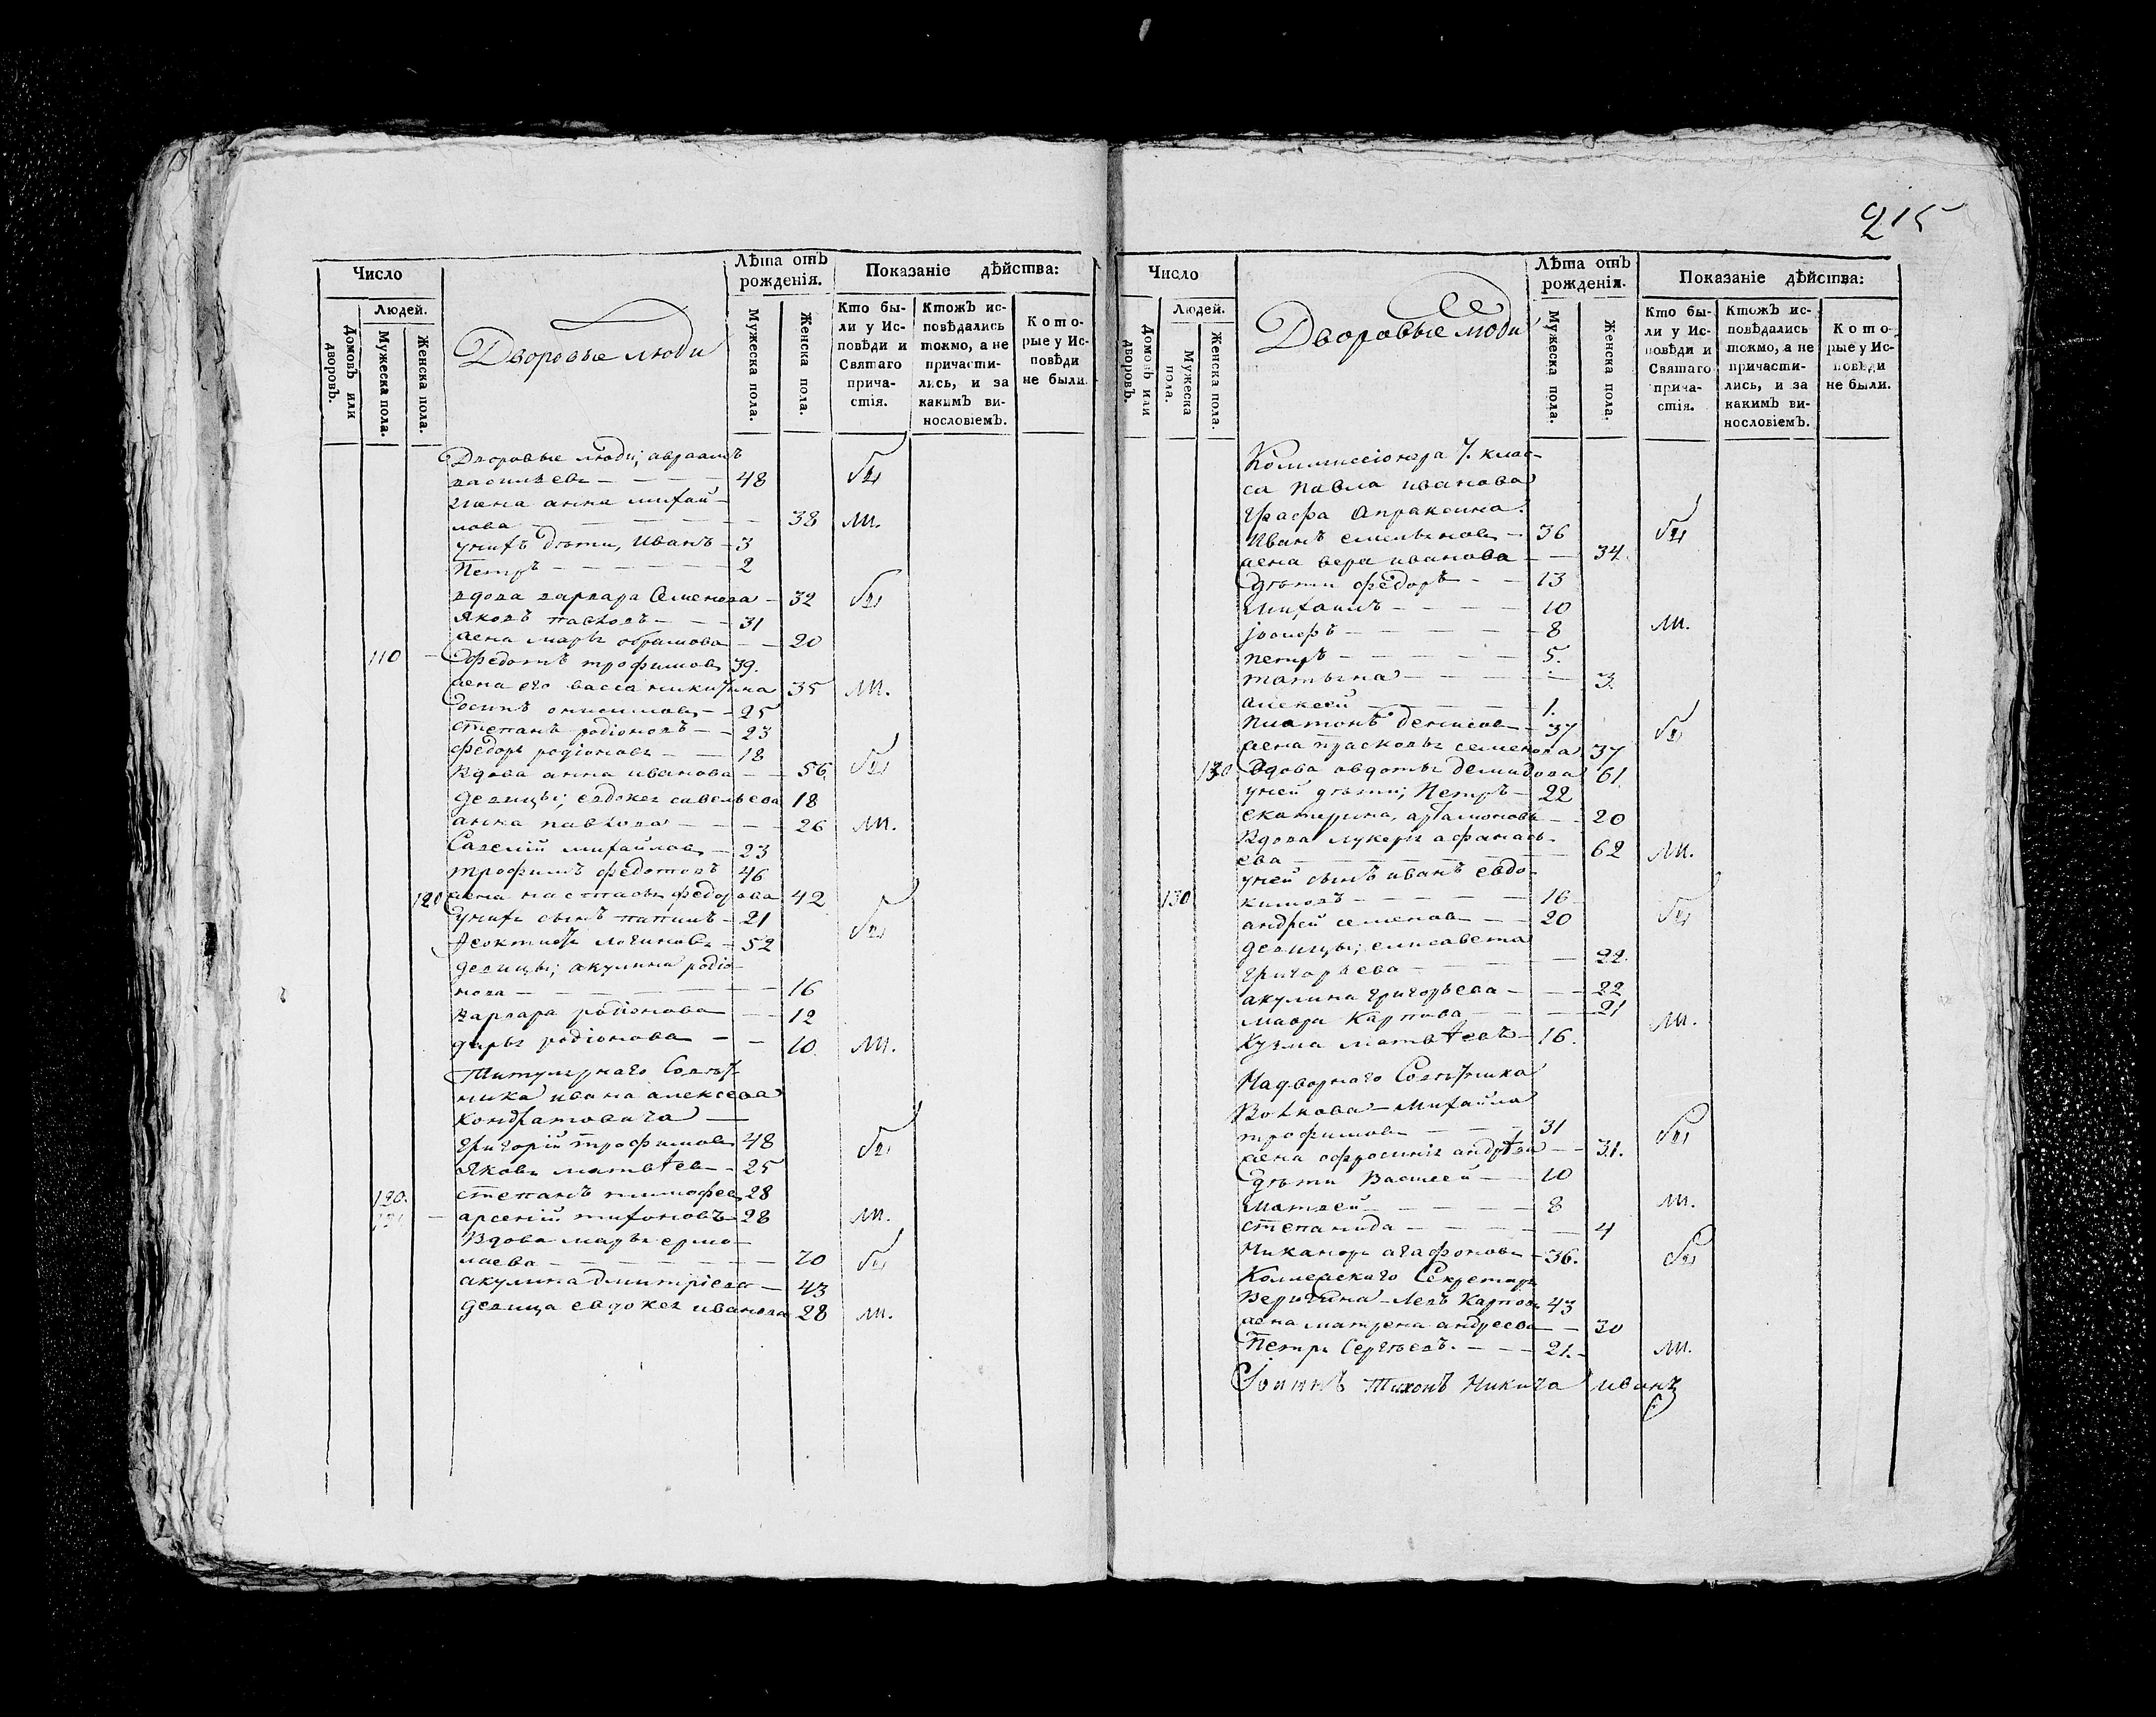 215
Число
Людей.
Домовъ или дворовъ.
Мужеска пола.
Женска пола.
Дворовые люди
Лѣта отъ рожденія.
Мужеска пола.
Женска пола.
Показаніе дѣйства:
Кто бы-
ли у Ис-
повѣди и
Святаго
прича-
стія.
Ктожъ ис-
повѣдались
токмо, а не
причасти-
лись, и за
какимъ ви-
нословіемъ.
Кото-
рые у Ис-
повѣди
не были.
Дворовые люди; авраамъ
васильевъ — 48 бы
жена анна михай-
лова — 38 ли.
унихъ дѣти, Иванъ — 3
Петръ — 2
вдова варвара Семенова — 32 бы
Яковъ павловъ — 31
жена марья абрамова — 20
110 — Федотъ трофимовъ 39.
жена его васса никитина 35 ли.
осипъ онисимовъ — 25
степанъ родіоновъ — 23
федоръ родіоновъ — 18
Вдова анна иванова — 56. бы
девицы; евдокея савельева 18
анна павлова — 26 ли.
Савелій михайловъ — 23
трофимъ федотовъ 46
120 жена настасья федорова 42
унихъ сынъ папилъ — 21 бы
Феоктистъ логиновъ — 52
девицы; акулина родіо-
нова — 16
варвара родіонова — 12
дарья родіонова — 10 ли.
Титулярнаго Совѣт-
ника ивана алексеева
кондратовича —
григорій трофимовъ 48 бы
Яковъ матвѣевъ — 25
120. степанъ тимофеевъ 28
121 — арсеній тихоновъ — 28 ли.
Вдова марья ермо-
лаева — 70 бы
акулина дмитріева — 43
девица евдокея иванова 28 ли.
Число
Людей.
Домовъ или дворовъ.
Мужеска пола.
Женска пола.
Дворовые люди
Лѣта отъ рожденія.
Мужеска пола.
Женска пола.
Показаніе дѣйства:
Кто бы-
ли у Ис-
повѣди и
Святаго
прича-
стія.
Ктожъ ис-
повѣдались
токмо, а не
причасти-
лись, и за
какимъ ви-
нословіемъ.
Кото-
рые у Ис-
повѣди
не были.
Коммиссіонера 7. клас-
са Павла иванова
Графа Апраксина.
Иванъ емельяновъ — 36 бы
жена вера иванова — 34.
дѣти федоръ — 13
Михаилъ — 10
іосифъ — 8 ли.
петръ — 5.
татьяна — 3.
алексей — 1.
Платонъ денисовъ — 37 бы
жена прасковья семенова 37
130 вдова авдотья демидова 61.
уней дѣти; Петръ — 22
екатерина, артамоновы — 20
Вдова лукерья афанась-
ева — 62 ли.
уней сынъ иванъ евдо-
130 кимовъ — 16
андрей семеновъ — 20 бы
девицы; елисавета
григорьева — 22.
акулина григорьева — 22
мавра Карпова — 21 ли.
Кузма матвѣевъ — 16.
Надворнаго Совѣтника
Волкова — Михайла
трофимовъ — 31 бы
жена афросинія андрѣева — 31.
дѣти Василей — 10
Матвей — 8 ли.
степанида — 4
Никаноръ агафоновъ — 36. бы
Колежскаго Секретаря
Левъ Карповъ 43
жена матрена андреева — 30
Петръ Сергѣевъ. — 21. — ли.
Іоаннъ Тихонъ Никита иванъ